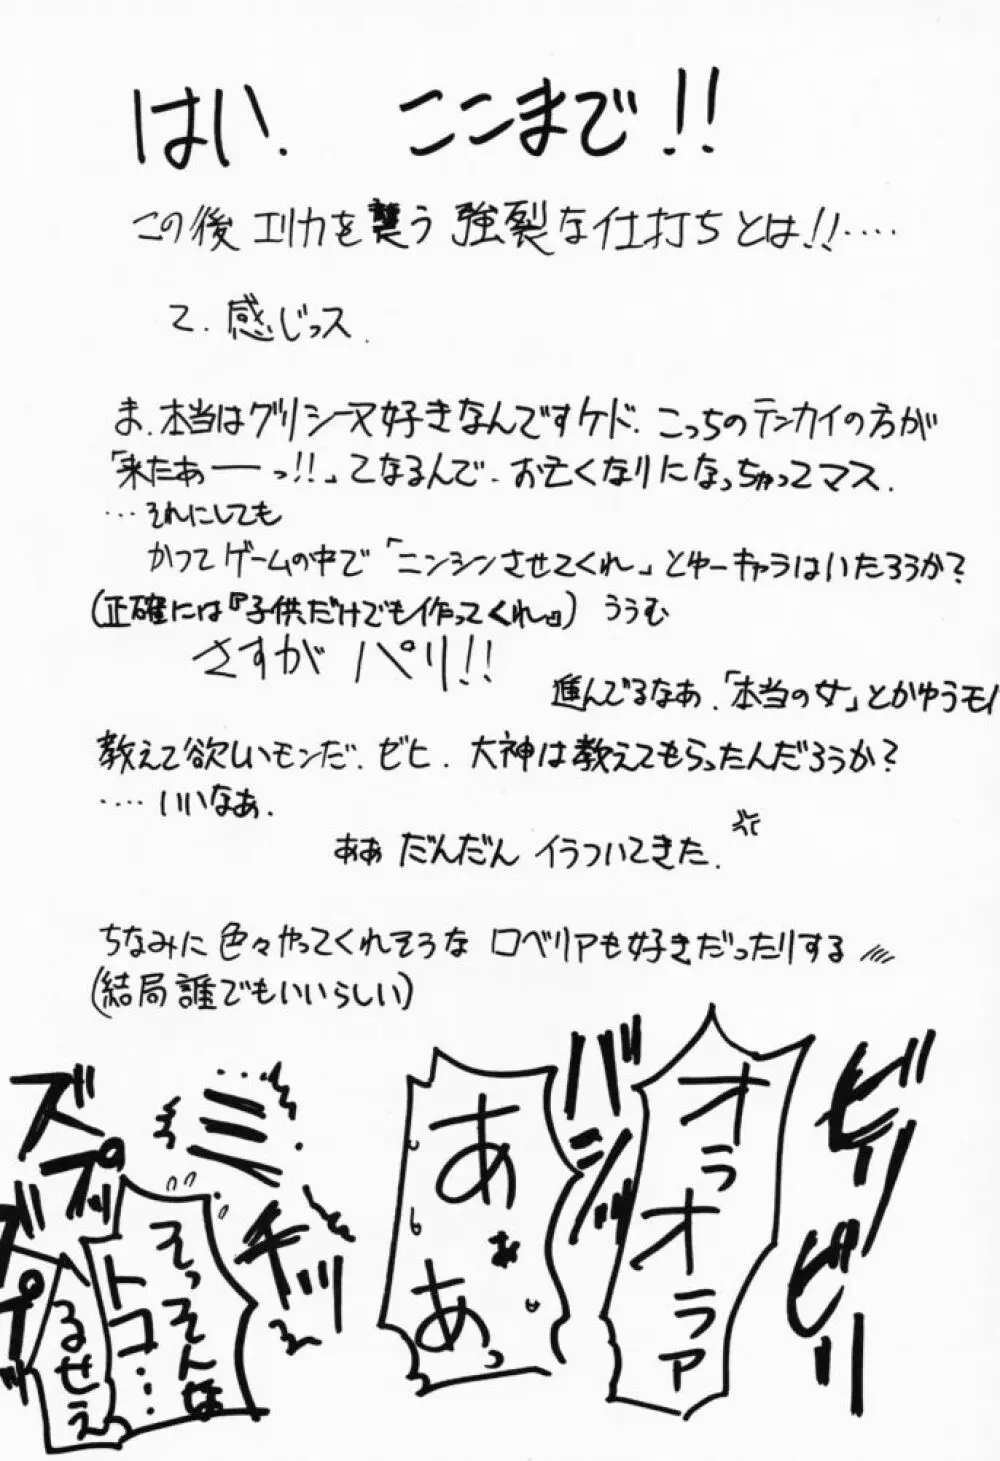 はい、ここまで!!
この後エリカを襲う強裂な仕打ちとは!!‥‥
て、感じっス.
ま、本当はグリシーヌ好きなんですケド、こっちのテンカイの方が
「来たあーっ!!」てなるんで、お亡くなりになっちゃってマス.
…それにしても
かつてゲームの中で「ニンシンさせてくれ」とゆーキャラはいたろうか?
(正確には『子供だけでも作ってくれ』) ううむ
さすが パリ!!
進んでるなあ、「本当の女」とかゆうモノ
教えて欲しいモンだ、ゼヒ、大神は教えてもらったんだろうか?
‥‥いいなあ.
ああ だんだん イラついてきた.
ちなみに 色々やってくれそうな ロベリアも好きだったりする
(結局誰でもいいらしい)
ビリ
ビリ
オラオラァ
バシッ
あぁあっ
ミチッ
そっそんな
トコ…
るせえ
ズプ
ズプ